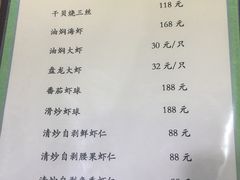 干贝烧三丝 118 元
油焖海虾 168 元
油焖大虾 30 元/只
盘龙大虾 32 元/只
番茄虾球 188 元
滑炒虾球 188 元
清炒自剥鲜虾仁 88 元
清炒自剥腰果虾仁 88 元
清炒自剥 虾仁 88 元